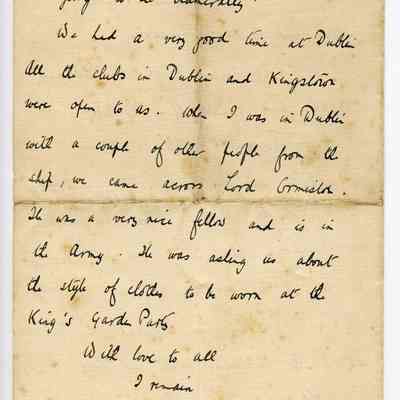 to be
We had a very good time at Dublin
All the clubs in Dublin and Kingstown
were open to us. When I was in Dublin
with a couple of other people from the
ship, we came across Lord Ormeston.
He was a very nice fellow and is in
the Army. He was asking us about
the style of clothes to be worn at the
King's Garden Party
With love to all
I remain